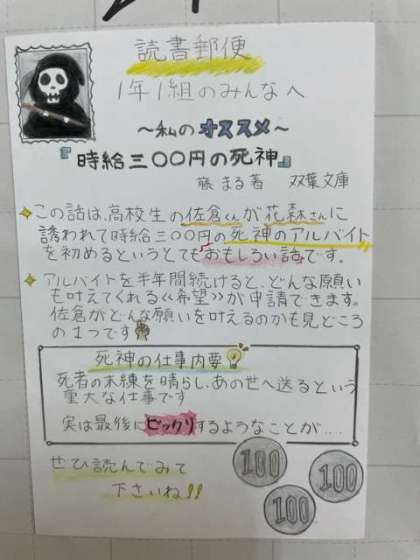 読書郵便
1年1組のみんなへ
～私のオススメ～
『時給三〇〇円の死神』
藤 まる著 双葉文庫
この話は、高校生の佐倉くんが花森さんに
誘われて時給三〇〇円の死神のアルバイト
を初めるというとてもおもしろい話です。
アルバイトを半年間続けると、どんな願い
も叶えてくれる《希望》が申請できます。
佐倉がどんな願いを叶えるのかも見どころ
の1つです
死神の仕事内容
死者の未練を晴らし、あの世へ送るという
重大な仕事です
実は最後にビックリするようなことが....
ぜひ読んでみて
下さいね!!
100
100
100